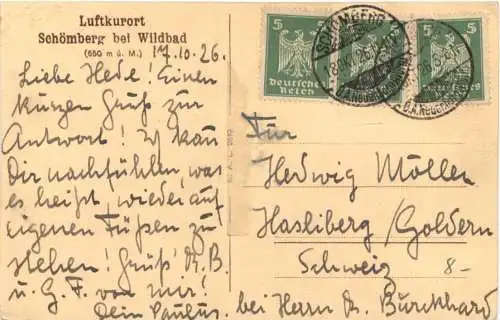 Luftkurort
Schömberg bei Wildbad
(650 m ü. M.)
17.10.26.
Liebe Hede! Einen
kurzen Gruß zur
Antwort! Ich kan
Dir nachfühlen, was
es heißt, wieder auf
eigenen Füßen zu
stehen! Gruß Dr. B.
u. G. F. von mir!
Dein Paulus.
5 5 5
Deutsches
Reich
SCHÖMBERG
Für
Hedwig Möller
Hasliberg/Goldern
Schweiz
8-
bei Herrn Dr. Burckhard